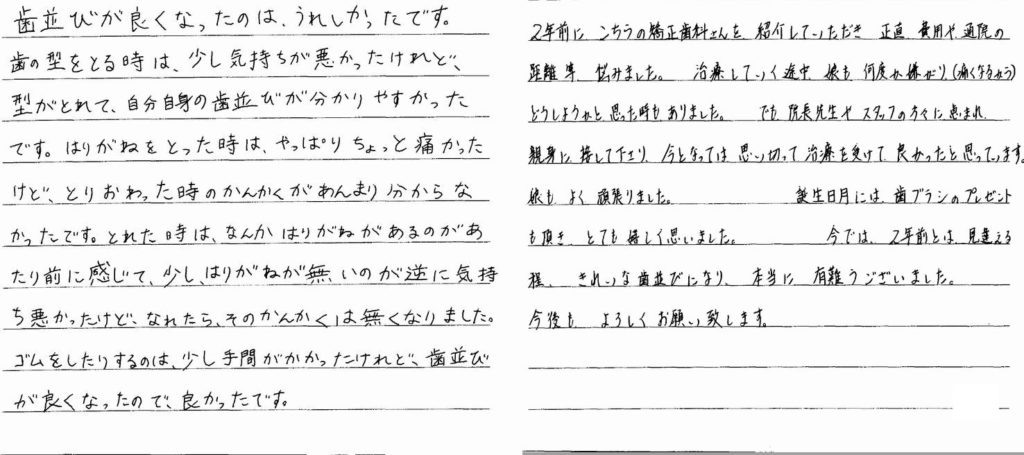 歯並びが良くなったのは、うれしかったです。
歯の型をとる時は、少し気持ちが悪かったけれど、
型がとれて、自分自身の歯並びが分かりやすかった
です。はりがねをとった時は、やっぱりちょっと痛かった
けど、とりおわった時のかんかくがあんまり分からな
かったです。とれた時は、なんかはりがねがあるのがあ
たり前に感じて、少し、はりがねが無いのが逆に気持
ち悪かったけど、なれたら、そのかんかくは無くなりました。
ゴムをしたりするのは、少し手間がかかったけれど、歯並び
が良くなったので、良かったです。
2年前に こちらの矯正歯科さんを 紹介していただき 正直 費用や通院の
距離等 悩みました。 治療していく途中 娘も 何度か嫌がり、(痛くなるから)
どうしようかと思った時もありました。 でも 院長先生や スタッフの方々に恵まれ
親身に接して下さり、今となっては 思い切って 治療を受けて 良かったと思っています。
娘も よく 頑張りました。 誕生日月には、歯ブラシのプレゼント
も頂き とても 嬉しく思いました。 今では、2年前とは、見違える
程、 きれいな歯並びになり、 本当に 有難うございました。
今後も よろしくお願い致します。